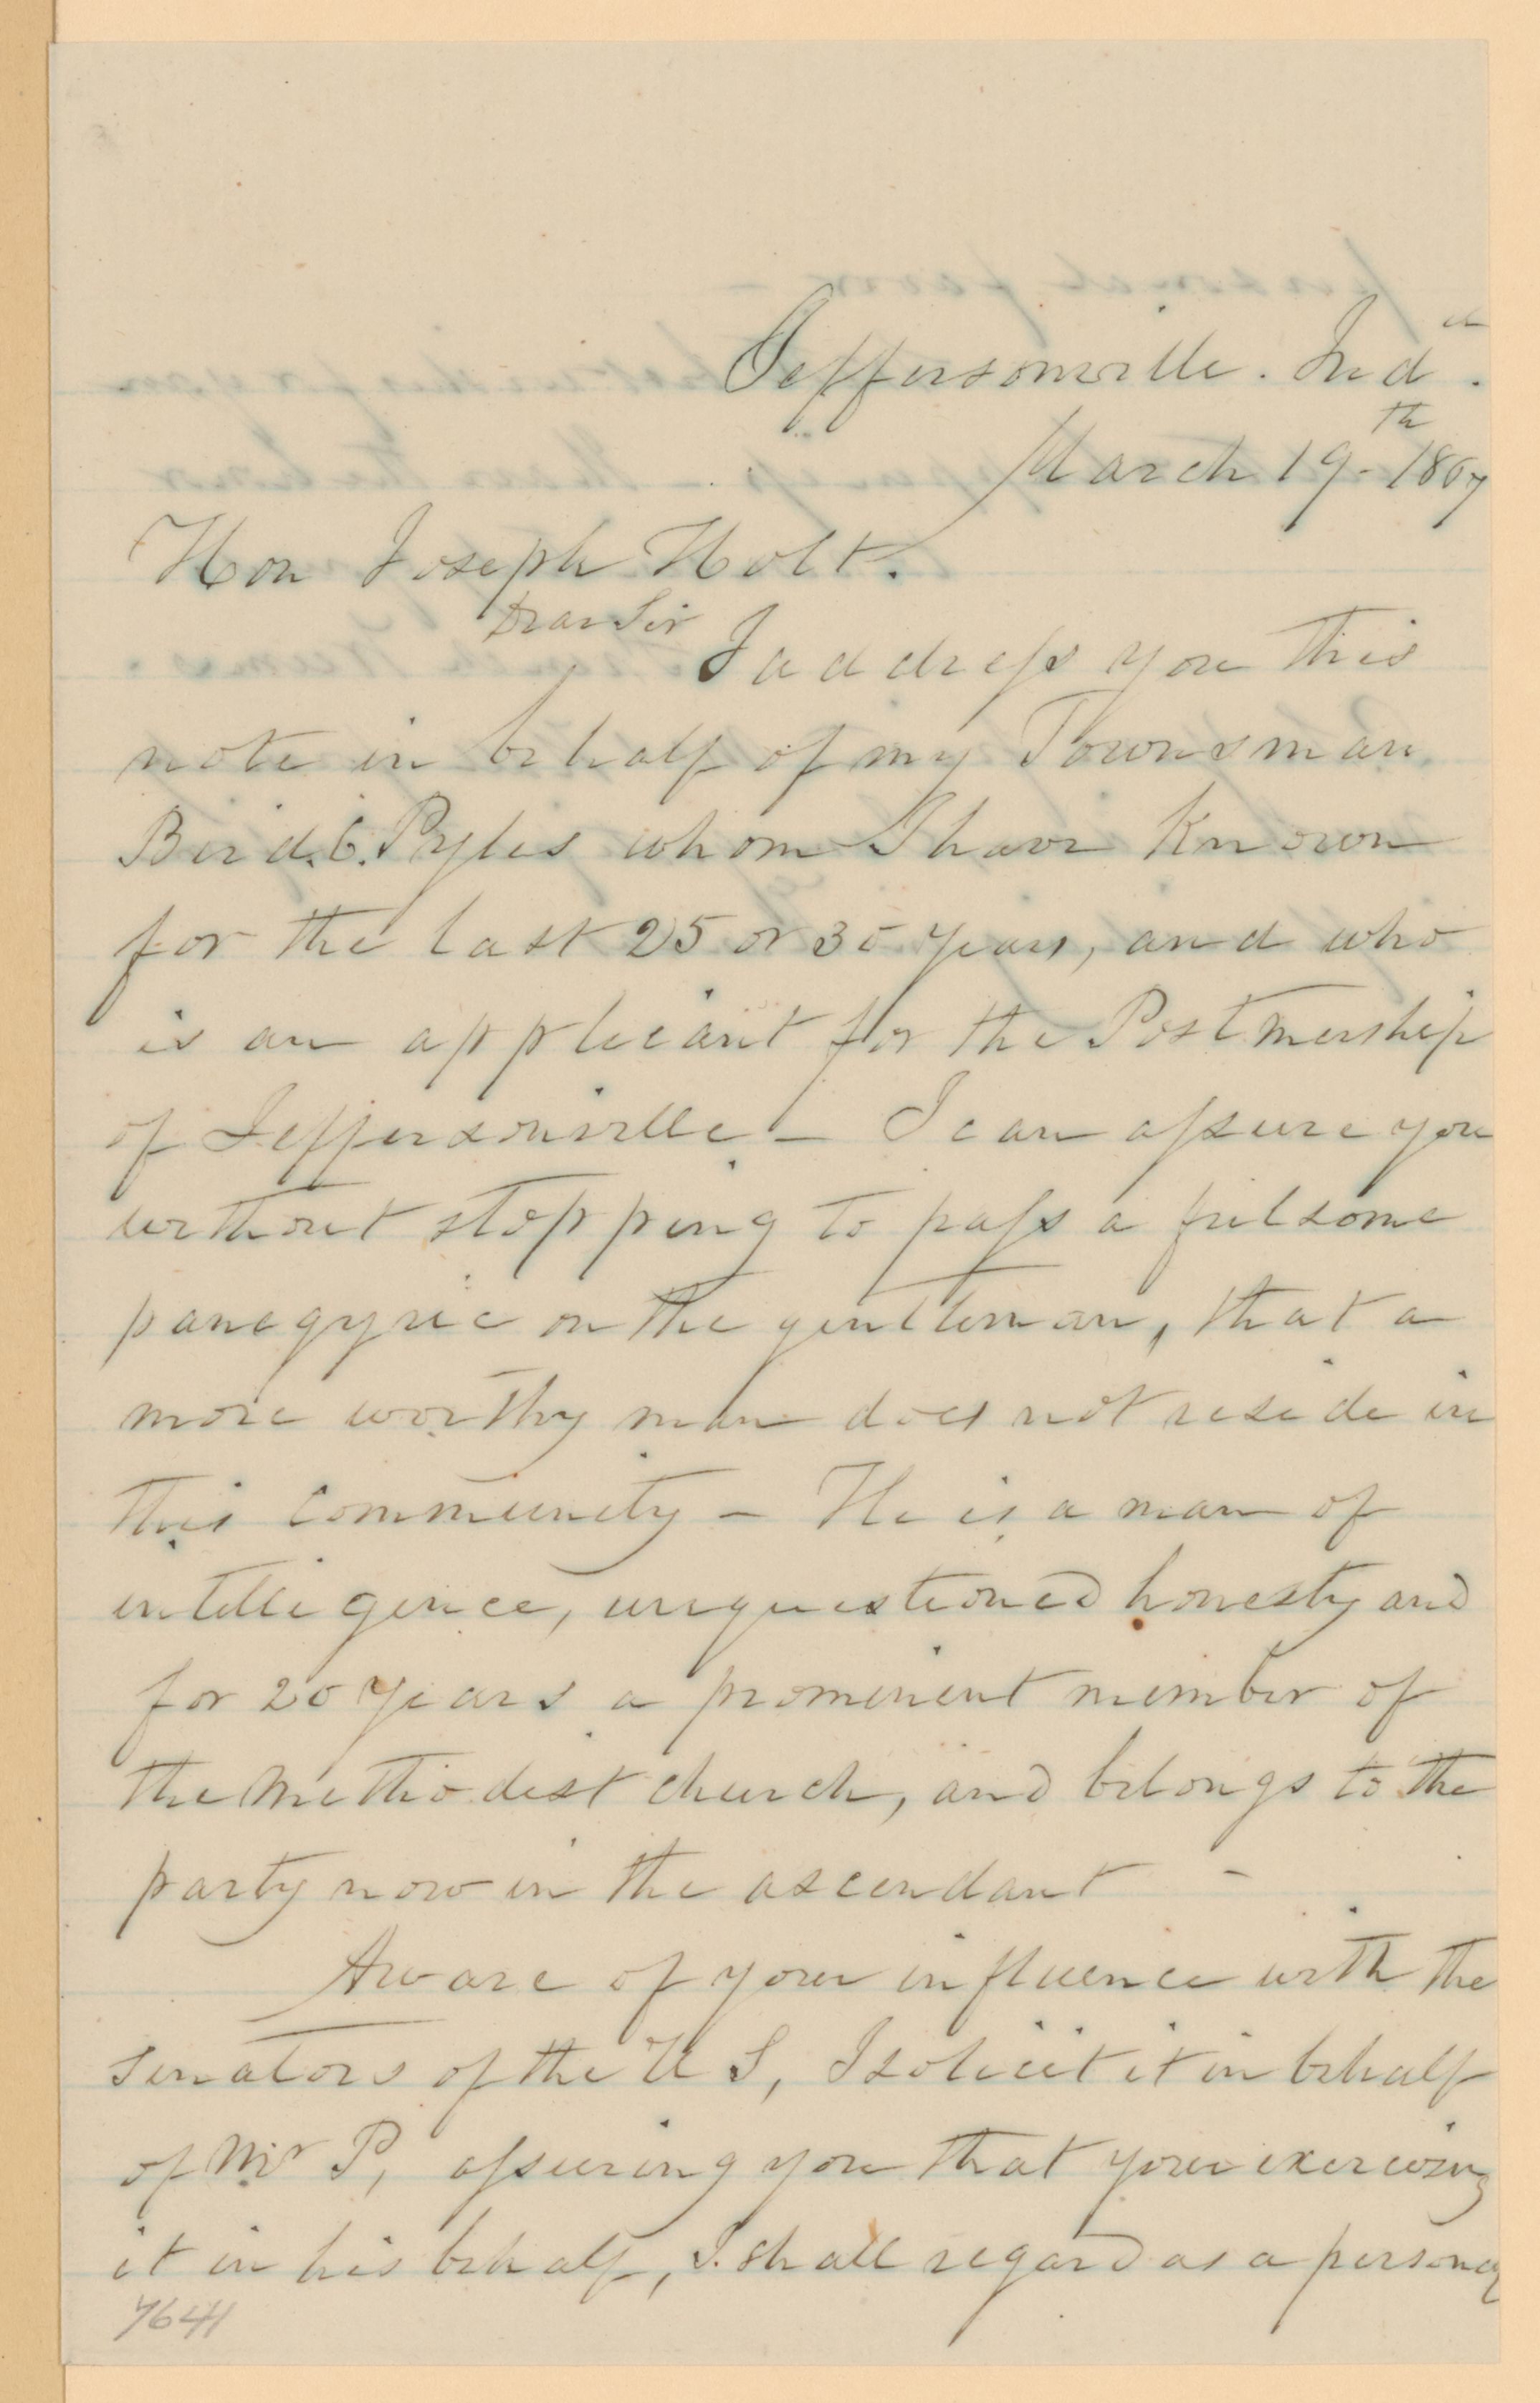 Jeffersonville. Inda.
March 19th 1867
Hon Joseph Holt.
Dear Sir
I address you this
note in behalf of my Townsman
Bird. C. Pyles whom I have Known
for the last 25 or 30 years, and who
is an applicant for the Postmership
of Jeffersonville – I can assure you
without stopping to pass a fulsome
panegyric on the gentleman, that a
more worthy man does not reside in
this community – He is a man of
intelligence, unquestioned honesty and
for 20 years a prominent member of
the Methodist church, and belongs to the
party now in the ascendant –
Aware of your influence with the
senators of the U S, I solicit it in behalf
of Mr P, assuring you that your exercising
it in his behalf, I shall regard as a personal
7641